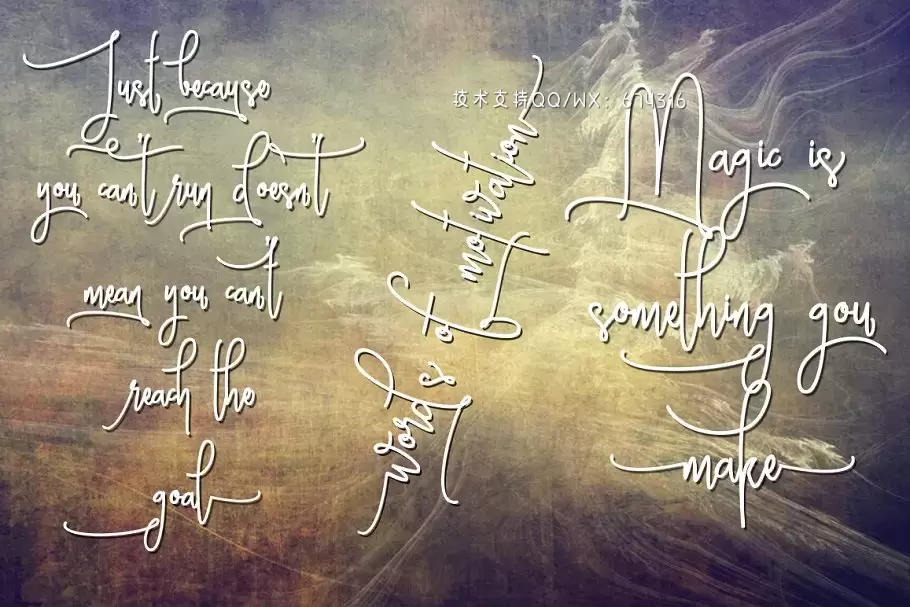 Just because
you can't run doesn't
mean you can't
reach the
goal
words of motivation
技术支持QQ/WX: 674316
Magic is
something you
make